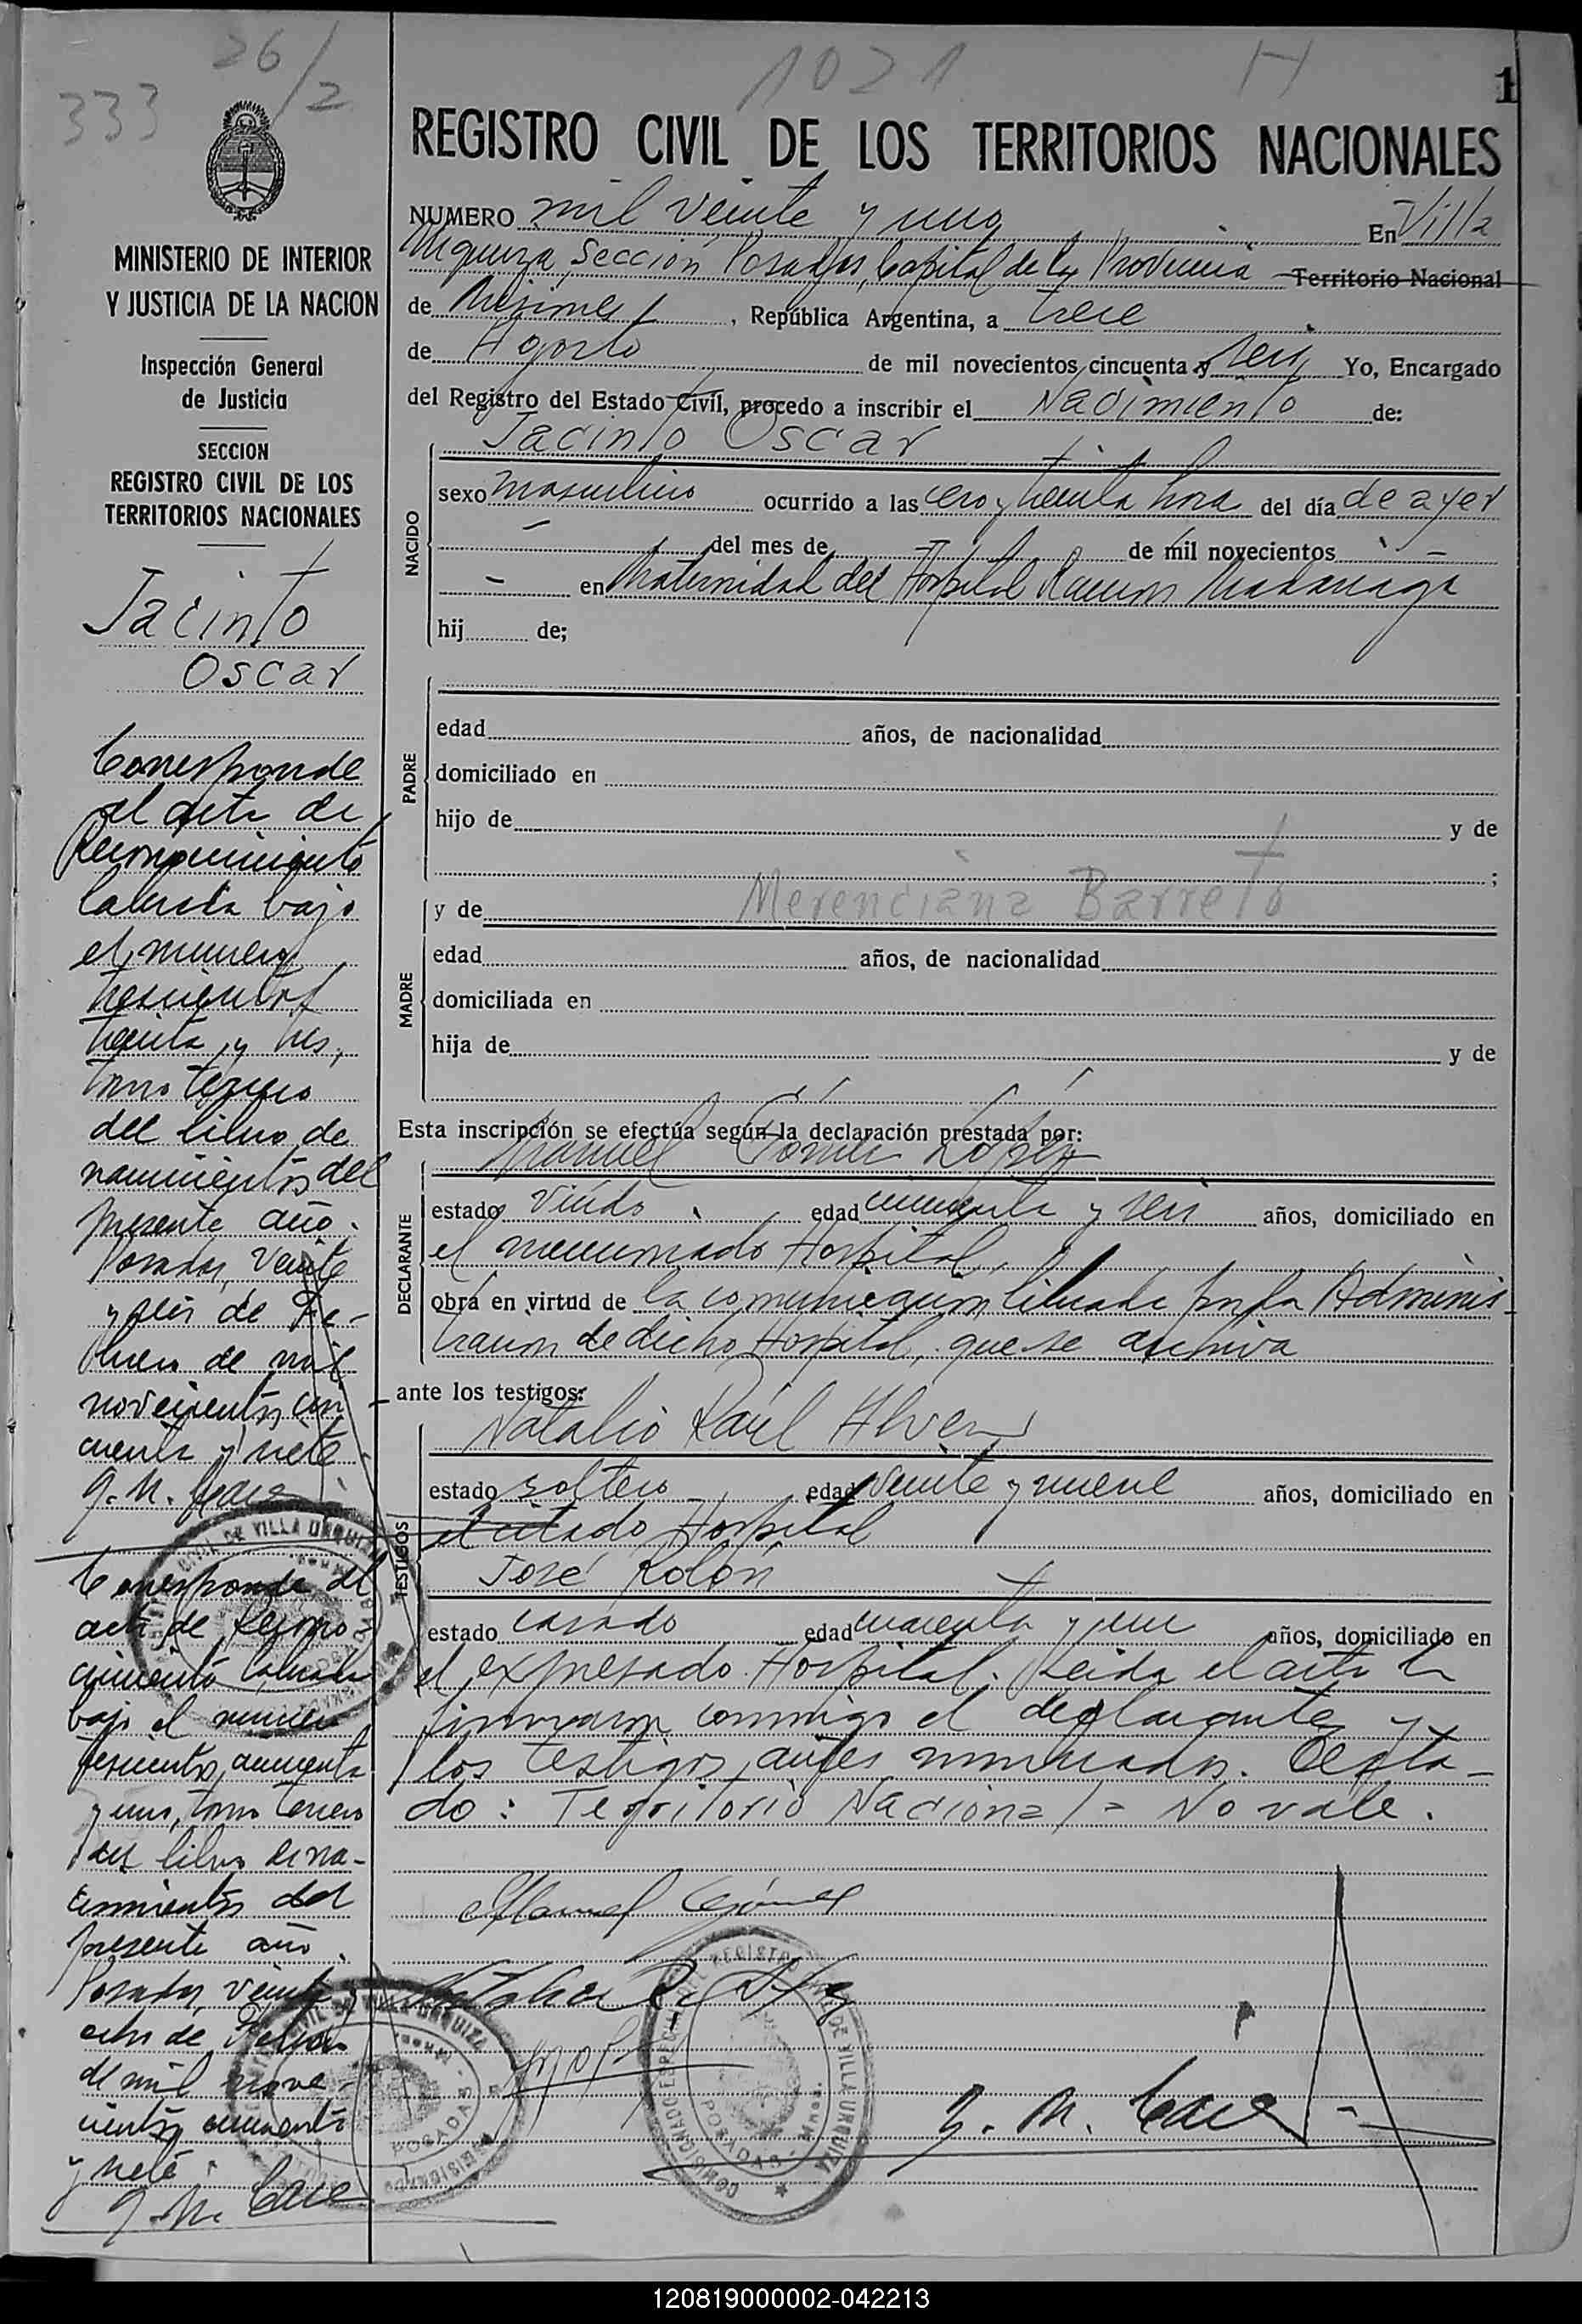 26/2
333
1021
H
1
REGISTRO CIVIL DE LOS TERRITORIOS NACIONALES
MINISTERIO DE INTERIOR
Y JUSTICIA DE LA NACION
Inspección General
de Justicia
SECCION
REGISTRO CIVIL DE LOS
TERRITORIOS NACIONALES
Jacinto
Oscar
Corresponde
al acta de
Reconocimiento
labrada bajo
el numero
trescientos
treinta y tres,
tomo tercero
del libro de
nacimientos del
presente año.
Posadas, veinte
y seis de Fe-
brero de mil
novecientos cin
cuenta y siete
Corresponde al
acta de Recono-
cimiento labrada
bajo el numero
trescientos cuarenta
y uno, tomo tercero
del libro de na-
cimientos del
presente año.
Posadas, veinte y
ocho de Febrero
de mil nove-
cientos cincuenta
y siete.
NUMERO mil veinte y uno En Villa
Urquiza, Sección Posadas, Capital de la Provincia Territorio Nacional
de Misiones, República Argentina, a trece
de Agosto de mil novecientos cincuenta y seis Yo, Encargado
del Registro del Estado Civil, procedo a inscribir el Nacimiento de:
Jacinto Oscar
NACIDO
sexo masculino ocurrido a las cero y treinta hora del día de ayer
del mes de de mil novecientos
en Maternidad del Hospital Ramon Madariaga
hij de;
PADRE
edad años, de nacionalidad
domiciliado en
hijo de y de
;
y de Merenciana Barreto
MADRE
edad años, de nacionalidad
domiciliada en
hija de y de
Esta inscripción se efectúa según la declaración prestada por:
Manuel Gómez López
DECLARANTE
estado viudo edad cincuenta y seis años, domiciliado en
el mencionado Hospital,
obra en virtud de la comunicación librada por la Adminis-
tracion de dicho Hospital, que se archiva
ante los testigos:
Natalio Raúl Alvez
TESTIGOS
estado soltero edad veinte y nueve años, domiciliado en
el citado Hospital
José Rolón
estado casado edad cuarenta y un años, domiciliado en
el expresado Hospital. Leida el acta la
firmaron conmigo el declarante y
los testigos antes nombrados. Testa-
do: Territorio Nacional = No vale.
Manuel Gómez
VILLA URQUIZA
POSADAS
120819000002-042213